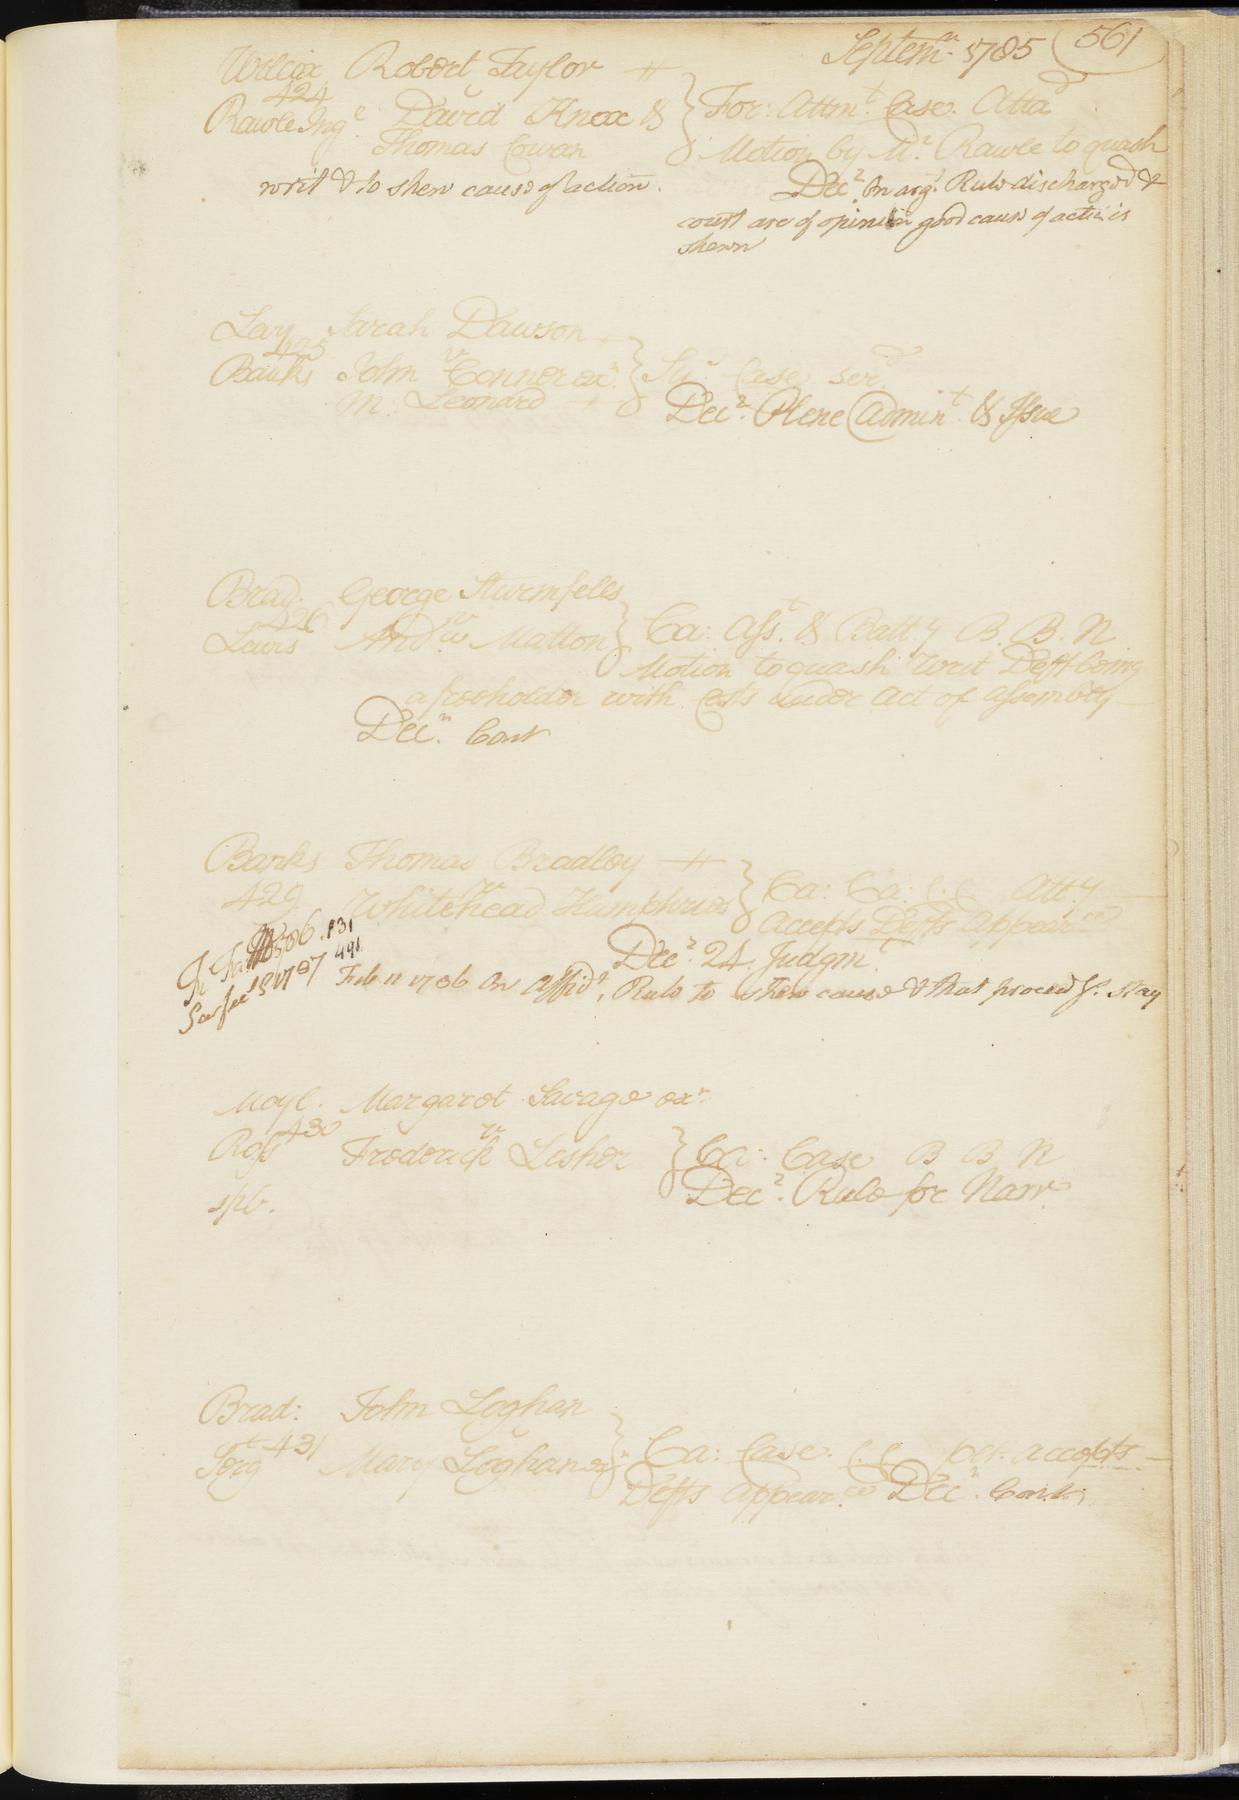 Septemr. 1785 561
Wilcox Robert Taylor
424
Rawle Inge. David Knox & } For: Attmt. Case. Attad
Thomas Cowan Motion by Mr. Rawle to quash
writ & to shew cause of action. Decr. On argt. Rule discharged &
court are of opinion good cause of action is
shewn
Levy Sarah Dawson
425 vr
Banks John Connor exr. } Sur. Case serd
M: Leonard Decr. Plene Admint. & Issue
Brad. George Sturmfells
426 vr
Lewis Andw. Matton } Ca: Asst. & Batty B. B. N
Motion to quash Writ Deft being
a freeholder with Costs under Act of assembly
Decr. Cont
Banks Thomas Bradley
429 vr
Whitehead Humphries } Ca: Ca: C.C Atty
accepts Defts appearce
Decr. 24. Judgmt.
Fi Fa 131
1787 491
Feb 11 1786 On Affidt. Rule to shew cause & that proceedgs. stay
Moyl. Margaret Savage exr.
430 vr
Frederick Lesher } Ca: Case B B N
Decr. Rule for Narr
spb.
Brad: John Loghan
Sergt 431 Mary Loghan } Ca: Case. C.C per. accepts
Defts Appearce Decr. Cont.